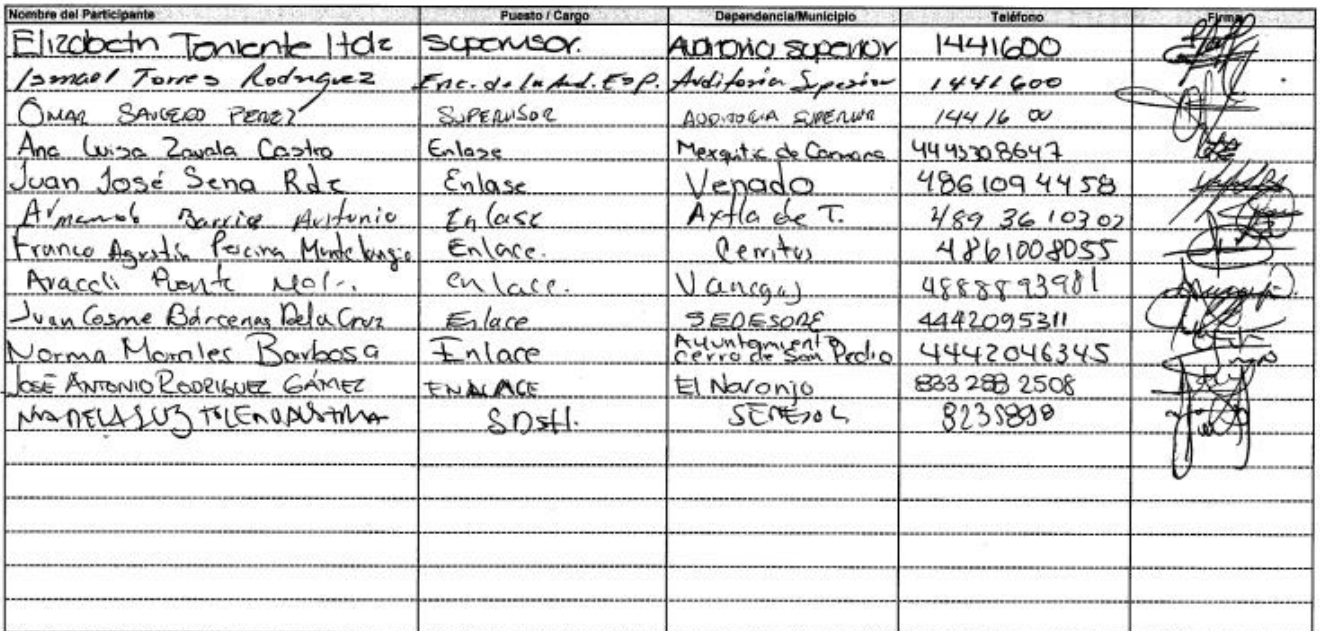 Nombre del Participante Puesto / Cargo Dependencia/Municipio Teléfono Firma
Elizabeth Torriente Hdz supervisor. Auditoria superior 1441600
Ismael Torres Rodriguez Enc. de la Aud. Esp. Auditoria Superior 1441600
OMAR SAUCEDO PEREZ SUPERVISOR AUDITORIA SUPERIOR 1441600
Ana Luisa Zavala Castro Enlase Mexquitic de Carmona
Juan José Sena Rdz Enlase Venado 4861094458
Barrios Antonio Enlase Axtla de T. 489 36 10302
Franco Agustín Enlace. Cerritos 4861008055
Araceli Puente enlace. Vanegas 4888893981
Juan Cosme Bárcenas De la Cruz Enlace SEDESORE 4442095311
Norma Morales Barbosa Enlace Ayuntamiento Cerro de San Pedro 4442046345
JOSÉ ANTONIO RODRIGUEZ GÁMEZ ENLACE El Naranjo 833 288 2508
MA DE LA LUZ